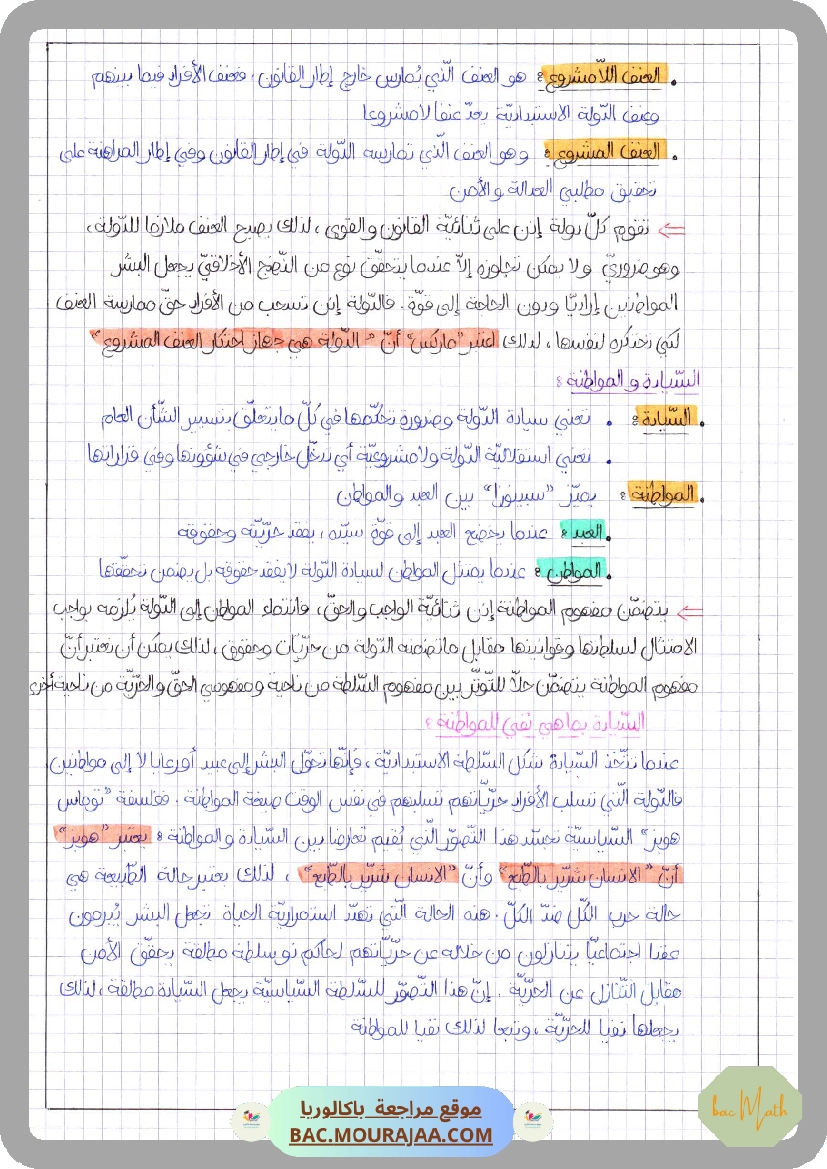 • العنف اللاّمشروع : هو العنف الّذي يُمارس خارج إطار القانون، فعنف الأفراد فيما بينهم
وعنف الدّولة الاستبداديّة يعدّ عنفا لامشروعا
• العنف المشروع : وهو العنف الّذي تمارسه الدّولة في إطار القانون وفي إطار المراهنة على
تحقيق مطلبي العدالة والأمن
⇐ تقوم كلّ دولة إذن على ثنائيّة القانون والقوى، لذلك يصبح العنف ملازما للدّولة،
وهو ضروريّ ولا يمكن تجاوزه إلاّ عندما يتحقّق نوع من النّضج الأخلاقيّ يجعل البشر
المواطنين إراديّا ودون الحاجة إلى قوّة. فالدّولة إذن تسحب من الأفراد حقّ ممارسة العنف
لكي تحتكره لنفسها، لذلك اعتبر "ماركس" أنّ "الدّولة هي جهاز احتكار العنف المشروع"
السّيادة و المواطنة :
• السّيادة : • تعني سيادة الدّولة وضرورة تحكّمها في كلّ ما يتعلّق بتسيير الشّأن العام
• تعني استقلاليّة الدّولة ولامشروعيّة أي تدخّل خارجي في شؤونها وفي قراراتها
• المواطنة : يميّز "سبينوزا" بين العبد والمواطن
• العبد : عندما يخضع العبد إلى قوّة سيّده، يفقد حرّيّته وحقوقه
• المواطن : عندما يمتثل المواطن لسيادة الدّولة لا يفقد حقوقه بل يضمن تحقّقها
⇐ يتضمّن مفهوم المواطنة إذن ثنائيّة الواجب والحقّ، فانتماء المواطن إلى الدّولة يُلزمه بواجب
الامتثال لسلطتها وقوانينها مقابل ما تضمنه الدّولة من حرّيّات وحقوق، لذلك يمكن أن نعتبر أنّ
مفهوم المواطنة يتضمّن حلاّ للتّوتّر بين مفهوم السّلطة من ناحية ومفهومي الحقّ والحرّيّة من ناحية أخرى
السّيادة بما هي نفي للمواطنة :
عندما تتّخذ السّيادة شكل السّلطة الاستبداديّة، فإنّها تحوّل البشر إلى عبيد أو رعايا لا إلى مواطنين
فالدّولة الّتي تسلب الأفراد حرّيّاتهم تسلبهم في نفس الوقت صبغة المواطنة. ففلسفة "توماس
هوبز" السّياسيّة تجسّد هذا التّصوّر الّذي يُقيم تعارضا بين السّيادة والمواطنة : يعتبر "هوبز"
أنّ "الإنسان شرّير بالطّبع" وأنّ "الإنسان شرّير بالطّبع"، لذلك يعتبر حالة الطّبيعة هي
حالة حرب الكّل ضدّ الكّل. هذه الحالة الّتي تهدّد استمراريّة الحياة تجعل البشر يُبرمون
عقدا اجتماعيّا يتنازلون من خلاله عن حرّيّاتهم لحاكم ذو سلطة مطلقة يحقّق الأمن
مقابل التّنازل عن الحرّيّة. إنّ هذا التّصوّر للسّلطة السّياسيّة يجعل السّيادة مطلقة، لذلك
يجعلها نفيا للحرّيّة، وتبعا لذلك نفيا للمواطنة
موقع مراجعة باكالوريا
BAC.MOURAJAA.COM
bac Math